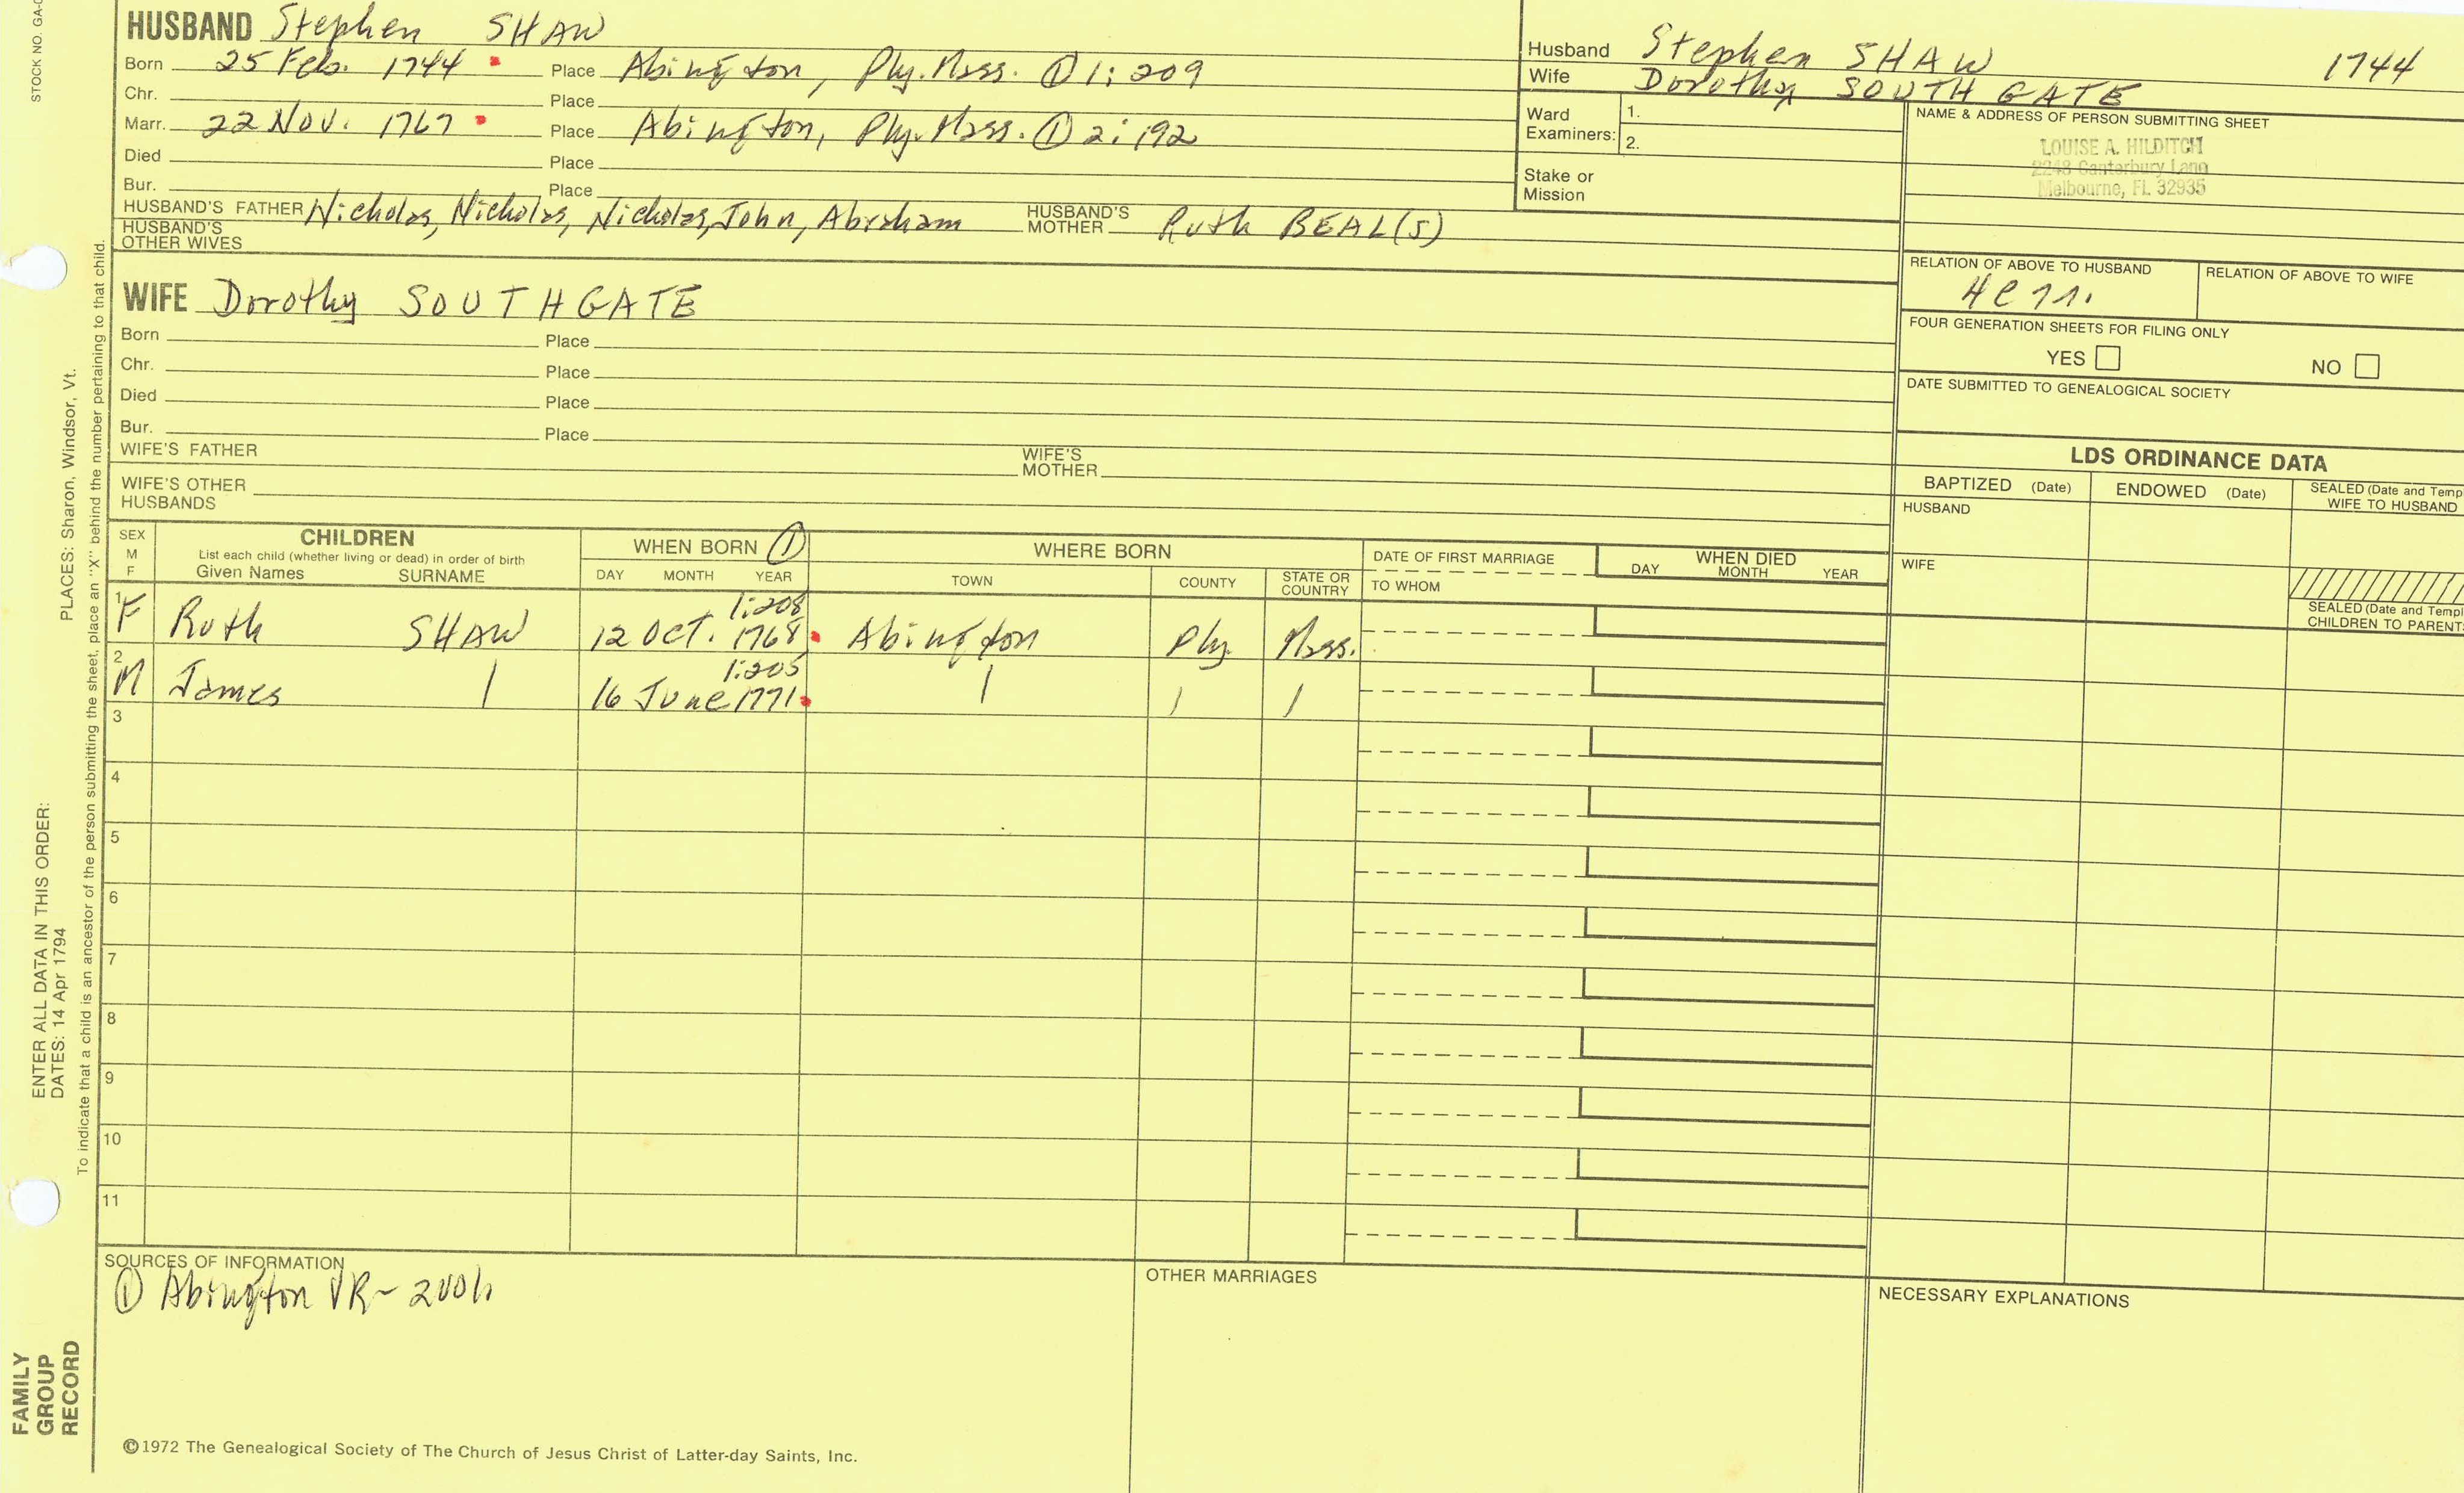 STOCK NO. GA-
HUSBAND Stephen SHAW
Born 25 Feb. 1744 Place Abington, Ply. Mass. ① 1:209
Chr. Place
Marr. 22 Nov. 1767 Place Abington, Ply. Mass. ① 2:192
Died Place
Bur. Place
HUSBAND'S FATHER Nicholas, Nicholas, Nicholas, John, Abraham HUSBAND'S MOTHER Ruth BEAL(S)
HUSBAND'S OTHER WIVES
Husband Stephen SHAW 1744
Wife Dorothy SOUTHGATE
Ward Examiners: 1.
2.
Stake or Mission
NAME & ADDRESS OF PERSON SUBMITTING SHEET
LOUISE A. HILDITCH
2248 Canterbury Lane
Melbourne, FL 32935
RELATION OF ABOVE TO HUSBAND RELATION OF ABOVE TO WIFE
FOUR GENERATION SHEETS FOR FILING ONLY
YES NO
DATE SUBMITTED TO GENEALOGICAL SOCIETY
WIFE Dorothy SOUTHGATE
Born Place
Chr. Place
Died Place
Bur. Place
WIFE'S FATHER WIFE'S MOTHER
WIFE'S OTHER HUSBANDS
LDS ORDINANCE DATA
BAPTIZED (Date) ENDOWED (Date) SEALED (Date and Temp
WIFE TO HUSBAND
HUSBAND
WIFE
SEALED (Date and Templ
CHILDREN TO PARENTS
SEX M F CHILDREN WHEN BORN ① WHERE BORN DATE OF FIRST MARRIAGE WHEN DIED
List each child (whether living or dead) in order of birth
Given Names SURNAME DAY MONTH YEAR TOWN COUNTY STATE OR COUNTRY TO WHOM DAY MONTH YEAR
1:208
1 F Ruth SHAW 12 Oct. 1768 Abington Ply Mass.
1:205
2 M James | 16 June 1771 | | |
3
4
5
6
7
8
9
10
11
SOURCES OF INFORMATION
① Abington VR-
OTHER MARRIAGES
NECESSARY EXPLANATIONS
©1972 The Genealogical Society of The Church of Jesus Christ of Latter-day Saints, Inc.
FAMILY
GROUP
RECORD
ENTER ALL DATA IN THIS ORDER:
DATES: 14 Apr 1794 PLACES: Sharon, Windsor, Vt.
To indicate that a child is an ancestor of the person submitting the sheet, place an "X" behind the number pertaining to that child.